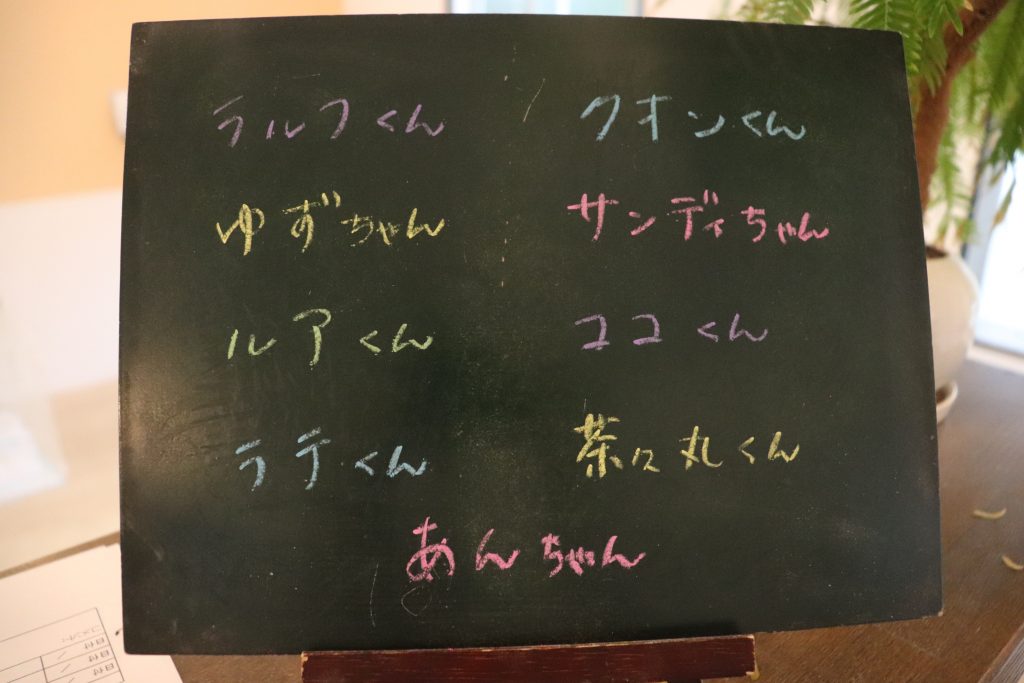 ラルフくん
クオンくん
ゆずちゃん
サンディちゃん
ルアくん
ココくん
ラテくん
茶々丸くん
あんちゃん
コメント:
日付
日付
日付